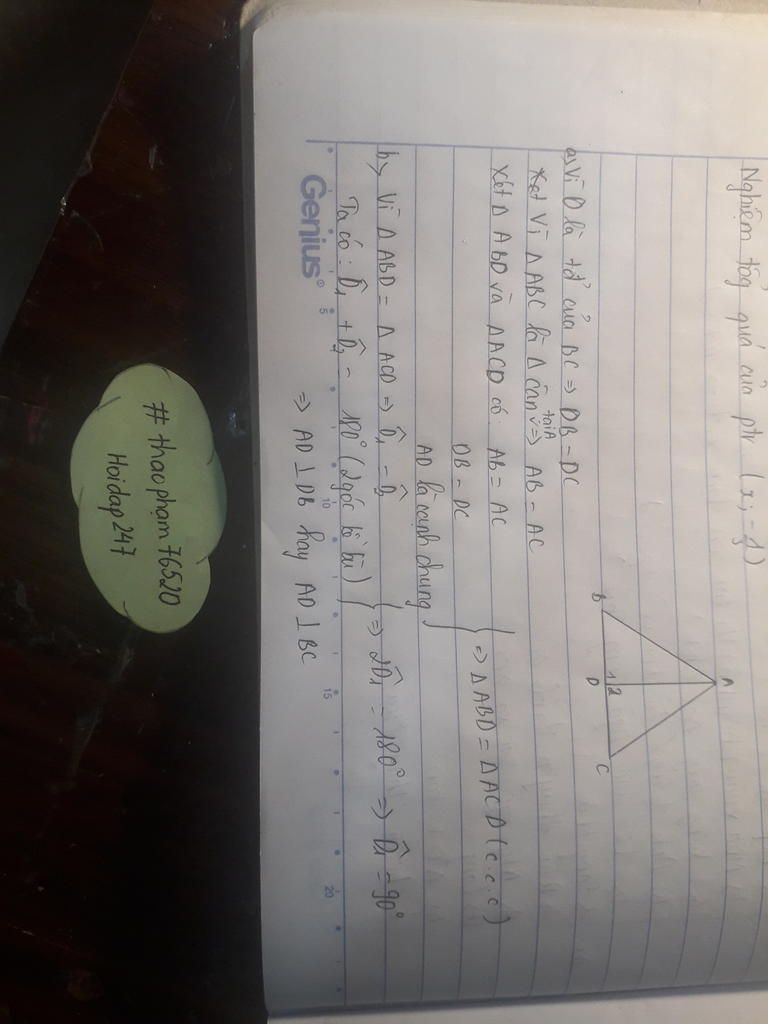 Nghiệm tổg quá của ptr (x; -y)
A
B
1 2
D
C
a, Vì D là tđ của BC => DB = DC
Vì Δ ABC là Δ cân tại A => AB = AC
Xét Δ ABD và Δ ACD có: AB = AC
DB = DC
AD là cạnh chung
=> ΔABD = ΔACD (c.c.c)
b, Vì Δ ABD = Δ ACD => D̂₁ = D̂₂
Ta có: D̂₁ + D̂₂ = 180° (2 góc kề bù)
=> 2D̂₁ = 180° => D̂₁ = 90°
=> AD ⊥ DB hay AD ⊥ BC
Genius®
5
10
15
20
# thaophạm76520
Hoidap247